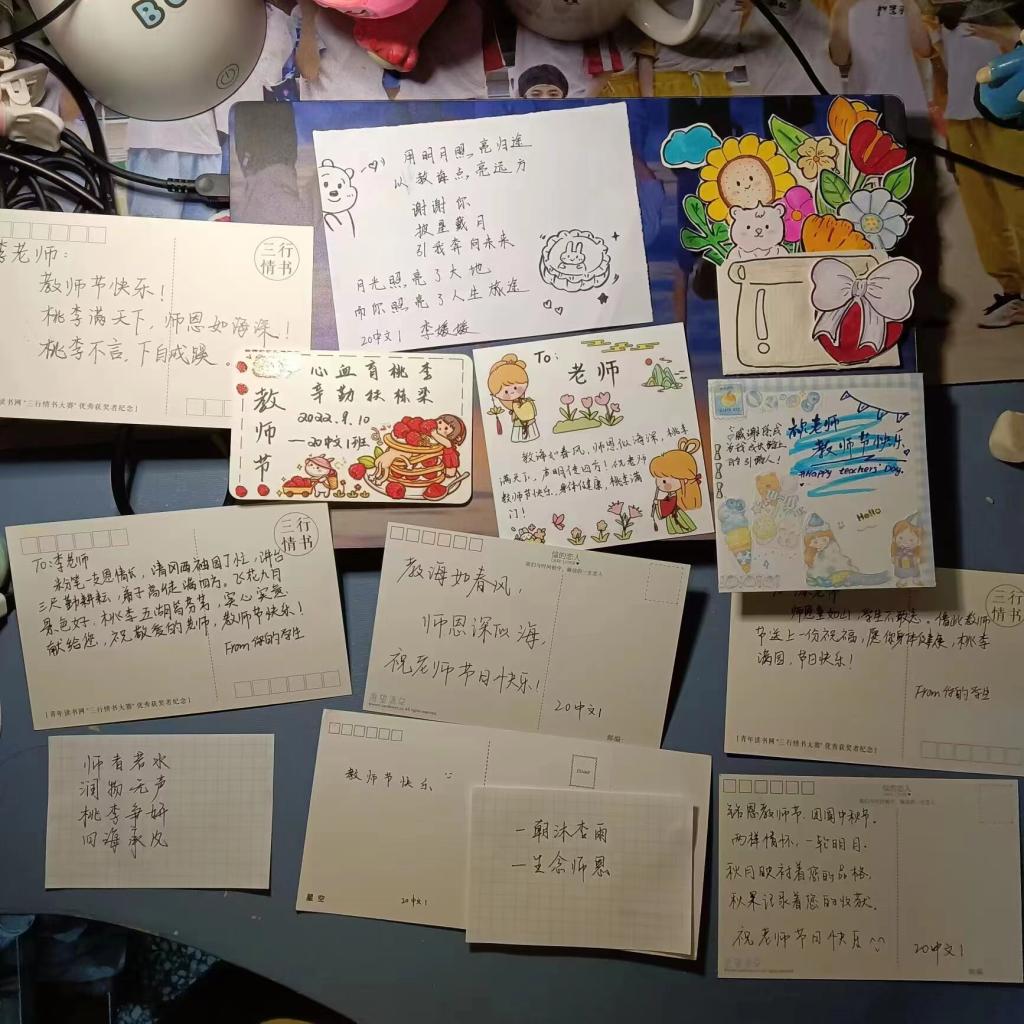 用明月照亮归途
以教诲点亮远方
谢谢你
披星戴月
引我奔向未来
月光照亮了大地
而你照亮了人生旅途
20中文1 李媛媛
三行
情书
李老师：
教师节快乐！
桃李满天下，师恩如海深！
桃李不言，下自成蹊
读书网"三行情书大赛"优秀获奖者纪念]
心血育桃李
辛勤扶栋梁
教师节
2022.9.10
—20中文1班
To:
老师
教诲如春风，师恩似海深，桃李
满天下，声明传四方！祝老师
教师节快乐，身体健康，桃李满
门！
老师
教师节快乐
Happy teachers' Day.
感谢
的引路人！
Hello
三行
情书
To:李老师
粉笔一支恩情长，清风两袖园丁忙，讲台
三尺勤耕耘，弟子高徒满四方，飞花九月
景色好，桃李五湖
献给您，祝敬爱的老师，教师节快乐！
From 你的学生
[青年读书网"三行情书大赛"优秀获奖者纪念]
信的恋人
教诲如春风，
师恩深似海，
祝老师节日快乐！
20中文1
邮编:
三行
情书
师恩重如山，学生不敢忘，借此教师
节送上一份祝福，愿你身体健康，桃李
满园，节日快乐！
From 你的学生
[青年读书网"三行情书大赛"优秀获奖者纪念]
师者若水
润物无声
桃李争妍
四海承风
教师节快乐
星空
20中文1
一朝沐杏雨
一生念师恩
信的恋人
铭恩教师节，团圆中秋节。
两样情怀，一轮明月。
秋月映衬着您的品格，
秋果记录着您的收获。
祝老师节日快乐^^
20中文1
邮编